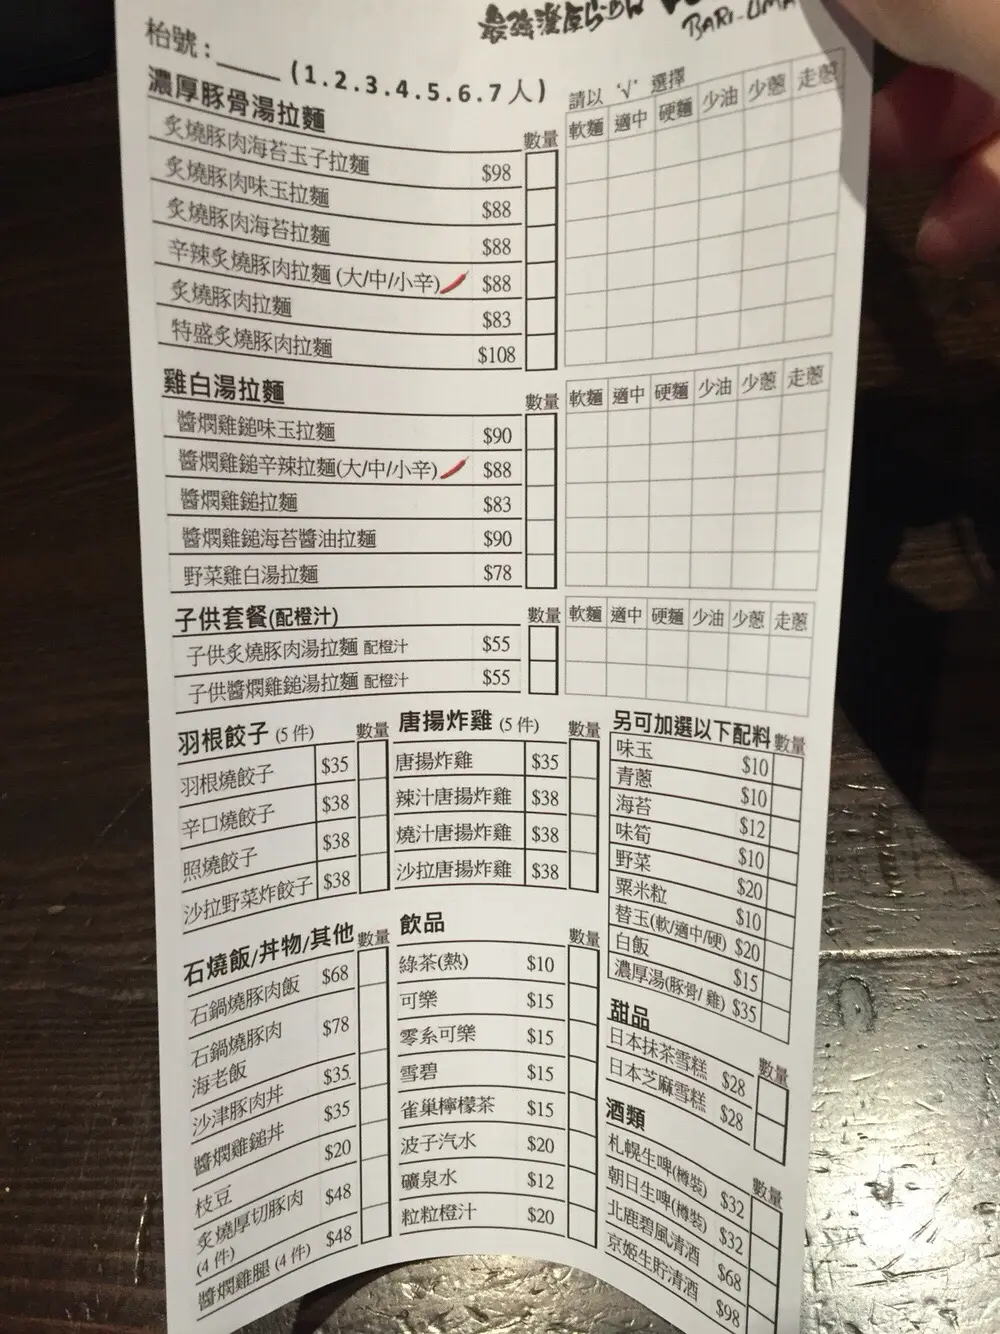 BARI-UMA
枱號：____ (1.2.3.4.5.6.7人)
請以 '√' 選擇
濃厚豚骨湯拉麵 數量 軟麵 適中 硬麵 少油 少蔥 走蔥
炙燒豚肉海苔玉子拉麵 $98
炙燒豚肉味玉拉麵 $88
炙燒豚肉海苔拉麵 $88
辛辣炙燒豚肉拉麵 (大/中/小辛) $88
炙燒豚肉拉麵 $83
特盛炙燒豚肉拉麵 $108
雞白湯拉麵 數量 軟麵 適中 硬麵 少油 少蔥 走蔥
醬燜雞鎚味玉拉麵 $90
醬燜雞鎚辛辣拉麵(大/中/小辛) $88
醬燜雞鎚拉麵 $83
醬燜雞鎚海苔醬油拉麵 $90
野菜雞白湯拉麵 $78
子供套餐(配橙汁) 數量 軟麵 適中 硬麵 少油 少蔥 走蔥
子供炙燒豚肉湯拉麵 配橙汁 $55
子供醬燜雞鎚湯拉麵 配橙汁 $55
羽根餃子 (5 件) 數量
羽根燒餃子 $35
辛口燒餃子 $38
照燒餃子 $38
沙拉野菜炸餃子 $38
唐揚炸雞 (5 件) 數量
唐揚炸雞 $35
辣汁唐揚炸雞 $38
燒汁唐揚炸雞 $38
沙拉唐揚炸雞 $38
另可加選以下配料 數量
味玉 $10
青蔥 $10
海苔 $12
味筍 $10
野菜 $20
粟米粒 $10
替玉(軟/適中/硬) $20
白飯 $15
濃厚湯(豚骨/ 雞) $35
石燒飯/丼物/其他 數量
石鍋燒豚肉飯 $68
石鍋燒豚肉
海老飯 $78
沙津豚肉丼 $35
醬燜雞鎚丼 $35
枝豆 $20
炙燒厚切豚肉
(4 件) $48
醬燜雞腿 (4 件) $48
飲品 數量
綠茶(熱) $10
可樂 $15
零系可樂 $15
雪碧 $15
雀巢檸檬茶 $15
波子汽水 $20
礦泉水 $12
粒粒橙汁 $20
甜品 數量
日本抹茶雪糕 $28
日本芝麻雪糕 $28
酒類 數量
札幌生啤(樽裝) $32
朝日生啤(樽裝) $32
北鹿碧風清酒 $68
京姬生貯清酒 $98